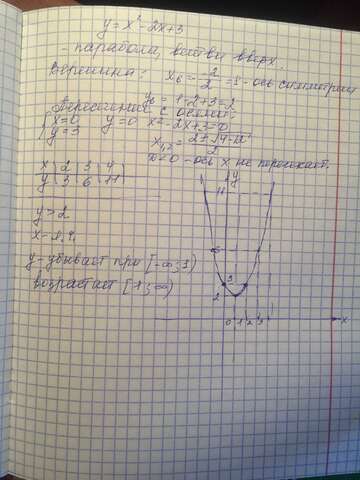 y = x² - 2x + 3
- парабола, ветви вверх.
Вершина: x₆ = 2/2 = 1 - ось симметрии
y₆ = 1 - 2 + 3 = 2
Пересечение с осями:
{ x = 0
y = 3
y = 0 x² - 2x + 3 = 0
x₁,₂ = 2 ± √4-12 / 2
- ось x не пересекает.
x 2 3 4
y 3 6 11
y > 2
y - убывает при [-∞; 1)
возрастает [1; ∞)
y
11
6
3
2
0 1 2 3
x